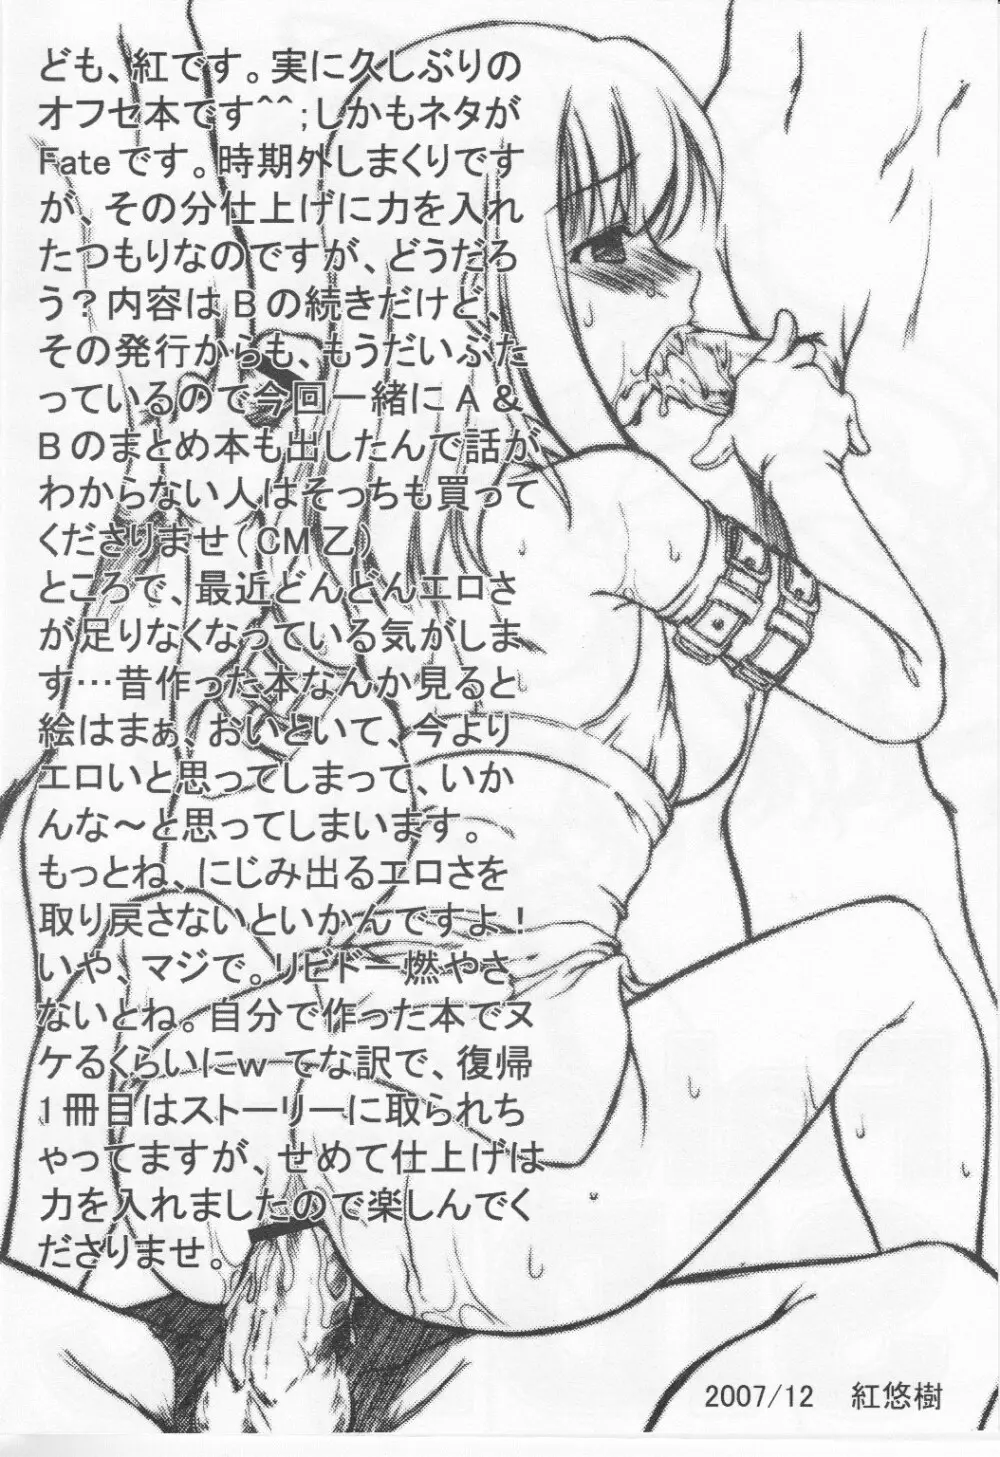 ども、紅です。実に久しぶりの
オフセ本です^^;しかもネタが
Fateです。時期外しまくりです
が、その分仕上げに力を入れ
たつもりなのですが、どうだろ
う？内容はBの続きだけど、
その発行からも、もうだいぶた
っているので今回一緒にA＆
Bのまとめ本も出したんで話が
わからない人はそっちも買って
くださりませ（CM乙）
ところで、最近どんどんエロさ
が足りなくなっている気がしま
す…昔作った本なんか見ると
絵はまぁ、おいといて、今より
エロいと思ってしまって、いか
んな～と思ってしまいます。
もっとね、にじみ出るエロさを
取り戻さないといかんですよ！
いや、マジで。リビドー燃やさ
ないとね。自分で作った本でヌ
ケるくらいにｗ てな訳で、復帰
1冊目はストーリーに取られち
ゃってますが、せめて仕上げは
力を入れましたので楽しんでく
ださりませ。
2007/12　紅悠樹